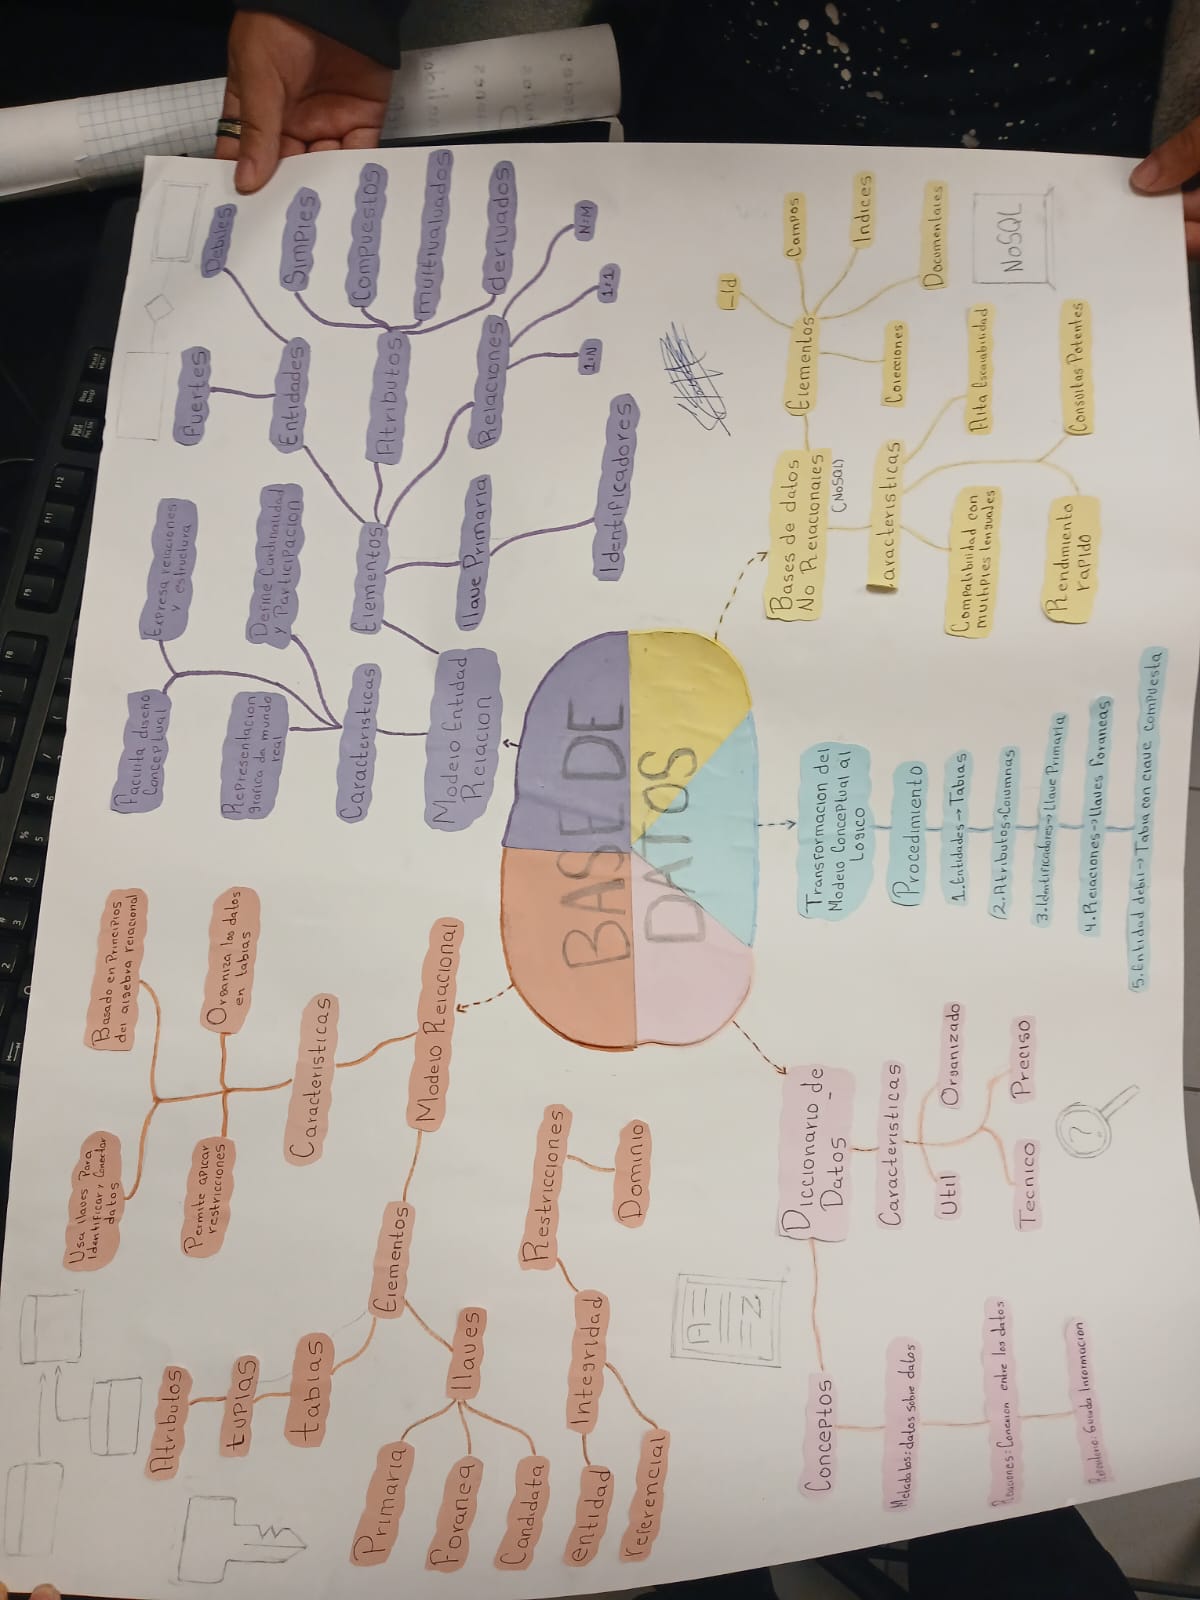 BASE DE
DATOS
Modelo Relacional
Caracteristicas
Usa llaves Para
Identificar y Conectar
datos
Basado en Principios
del algebra relacional
Permite aplicar
restricciones
Organiza los datos
en tablas
Elementos
Atributos
tuplas
tablas
llaves
Primaria
Foranea
Candidata
Restricciones
Dominio
Integridad
entidad
referencial
Modelo Entidad
Relacion
Caracteristicas
Facilita diseño
Conceptual
Expresa relaciones
y estructura
Representacion
grafica da mundo
real
Define Cardinalidad
y Participacion
Elementos
Entidades
Fuertes
Debiles
Atributos
Simples
Compuestos
multivaluados
derivados
Relaciones
1:N
1:1
N:M
llave Primaria
Identificadores
Bases de datos
No Relacionales
(NoSQL)
Elementos
_Id
Campos
Indices
Documentales
Colecciones
Caracteristicas
Alta Escalabilidad
Compatibilidad con
multiples lenguajes
Consultas Potentes
Rendimiento
rapido
NoSQL
Transformacion del
Modelo Conceptual al
Logico
Procedimiento
1. Entidades → Tablas
2. Atributos → Columnas
3. Identificadores → Llave Primaria
4. Relaciones → llaves Foraneas
5. Entidad debil → Tabla con clave compuesta
Diccionario de
Datos
Caracteristicas
Util
Organizado
Tecnico
Preciso
?
Conceptos
Metadatos: datos sobre datos
Relaciones = Conexion entre los datos
Guarda Informacion
A
Z